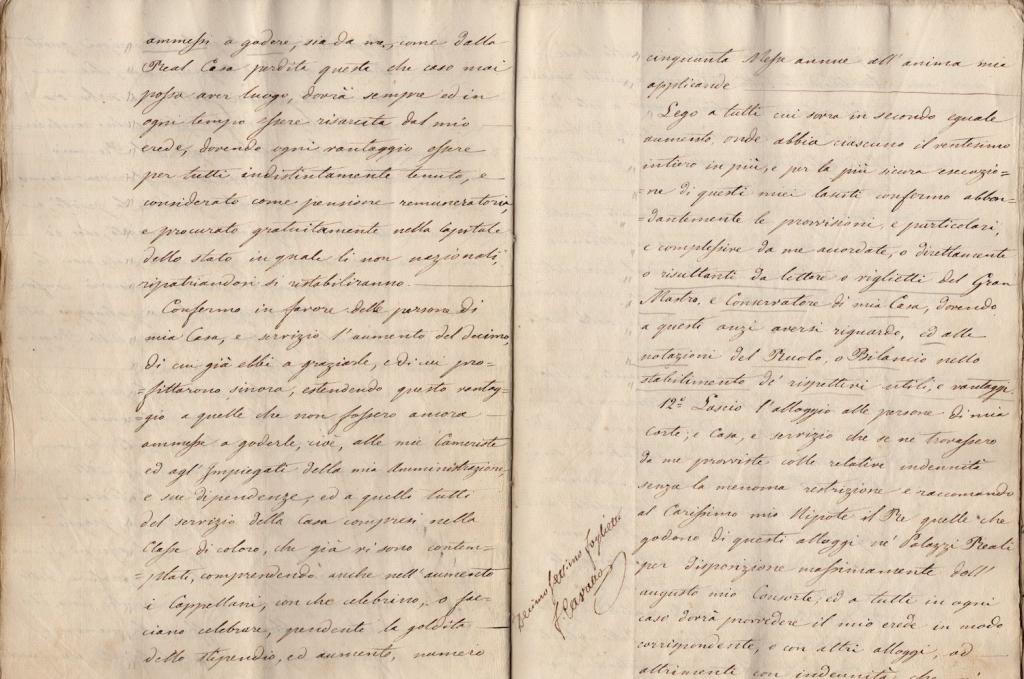 ammessi a godere, sia da me, come dalla
Real Casa perdita questa che caso mai
possa aver luogo, dovrà sempre ed in
ogni tempo essere risarcita dal mio
erede, dovendo ogni vantaggio essere
per tutti indistintamente tenuto, e
considerato come pensione remuneratoria,
e procurato gratuitamente nella Capitale
dello stato in quale li non nazionali,
ripatriandosi si ristabiliranno.
Confermo in favore delle persone di
mia Casa, e servizio l'aumento del decimo,
di cui già ebbi a graziarle, e di cui pro=
=fittarono sinora, estendendo questo vantag=
=gio a quelle che non fossero ancora
ammesse a goderle, cioè, alle mie Cameriste
ed agl'Impiegati della mia Amministrazione,
e sue dipendenze, ed a quelle tutti
del servizio della Casa compresi nella
Classe di coloro, che già vi sono contem=
=plati, comprendendo anche nell'aumento
i Cappellani, con che celebrino, o fac=
ciano celebrare, pendente la goldita
dello stipendio, ed aumento, numero
cinquanta Messe annue all'anima mia
applicande
Lego a tutti cui sovra in secondo eguale
aumento, onde abbia ciascuno il ventesimo
intiero in più, e per la più sicura esecuzio=
=ne di questi miei lasciti confermo abbon=
=dantemente le provvisioni, e particolari,
e complessive da me accordate, o direttamente
o risultanti da lettere o viglietti del Gran
Mastro, e Conservatore di mia Casa, dovendo
a questi anzi aversi riguardo, ed alle
notazioni del Ruolo, o Bilancio nello
stabilimento de' rispettivi utili, e vantaggi.
12.° Lascio l'alloggio alle persone di mia
Corte, e Casa, e servizio che se ne trovassero
da me provviste colle relative indennità
senza la menoma restrizione e raccomando
al Carissimo mio Nipote il Re quelle che
godono di questi alloggi ne' Palazzi Reali
per disposizione massimamente dell'
augusto mio Consorte, ed a tutte in ogni
caso dovrà provvedere il mio erede in modo
corrispondente, o con altri alloggi, od
altrimenti con indennità che
Decimo settimo foglietto